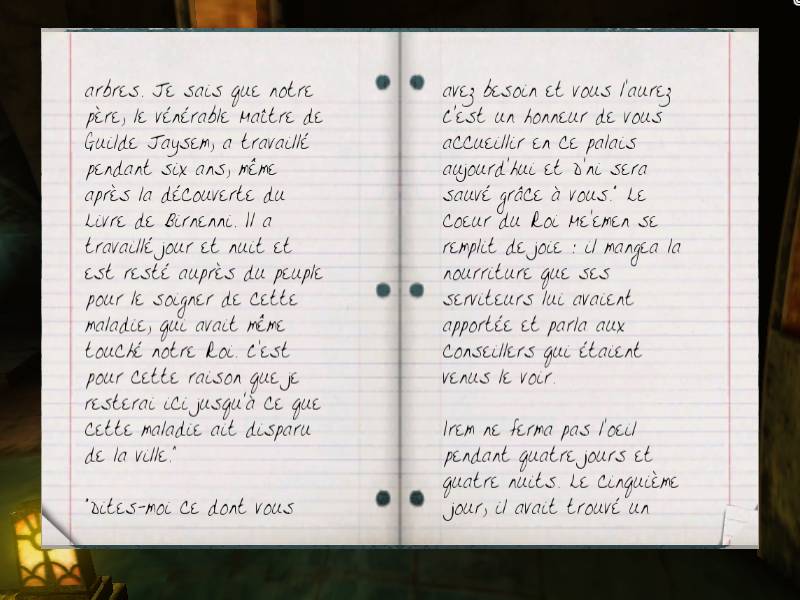 arbres. Je sais que notre
père, le vénérable Maître de
Guilde Jaysem, a travaillé
pendant six ans, même
après la découverte du
Livre de Birnenni. Il a
travaillé jour et nuit et
est resté auprès du peuple
pour le soigner de cette
maladie, qui avait même
touché notre Roi. C'est
pour cette raison que je
resterai ici jusqu'à ce que
cette maladie ait disparu
de la ville."
"Dites-moi ce dont vous
avez besoin et vous l'aurez
C'est un honneur de vous
accueillir en ce palais
aujourd'hui et D'ni sera
sauvé grâce à vous." Le
coeur du Roi Me'emen se
remplit de joie : il mangea la
nourriture que ses
serviteurs lui avaient
apportée et parla aux
conseillers qui étaient
venus le voir.
Irem ne ferma pas l'oeil
pendant quatre jours et
quatre nuits. Le cinquième
jour, il avait trouvé un